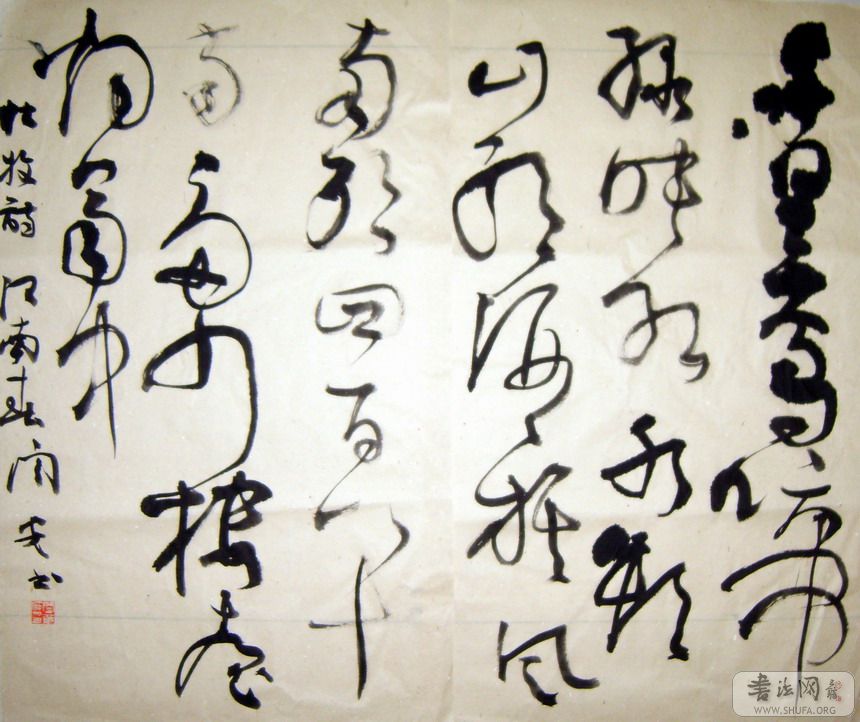 千里莺啼
绿映红水邨
山郭酒旗风
南朝四百八十
寺多少楼台
烟雨中
杜牧诗江南春 书
书法网
WWW.SHUFA.ORG